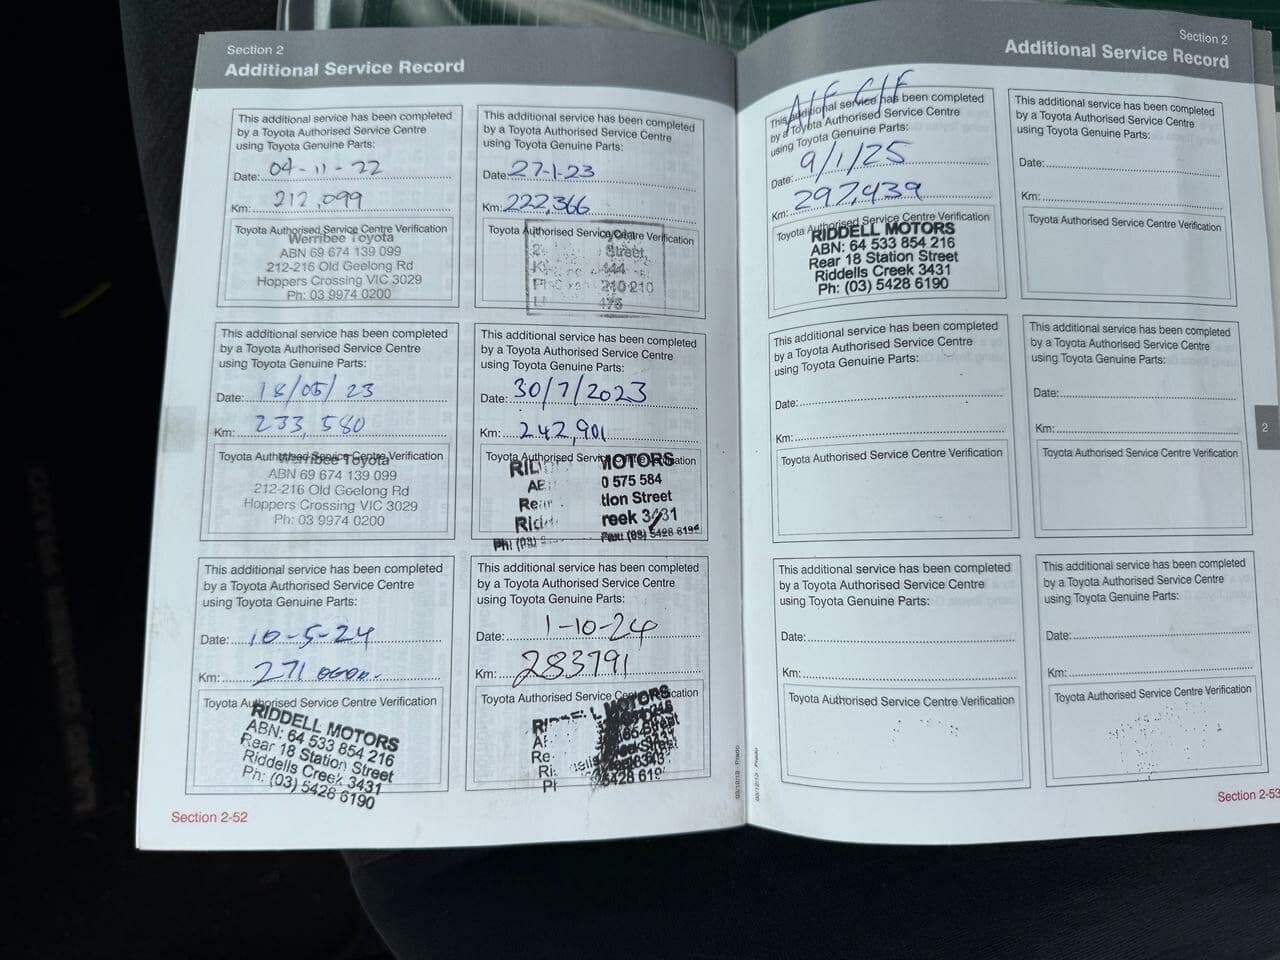 Section 2
Additional Service Record
This additional service has been completed
by a Toyota Authorised Service Centre
using Toyota Genuine Parts:
Date: 04-11-22
Km: 212,099
Toyota Authorised Service Centre Verification
Werribee Toyota
ABN 69 674 139 099
212-216 Old Geelong Rd
Hoppers Crossing VIC 3029
Ph: 03 9974 0200
This additional service has been completed
by a Toyota Authorised Service Centre
using Toyota Genuine Parts:
Date: 27-1-23
Km: 222,366
Toyota Authorised Service Centre Verification
Street
This additional service has been completed
by a Toyota Authorised Service Centre
using Toyota Genuine Parts:
Date: 18/05/23
Km: 233,580
Toyota Authorised Service Centre Verification
Werribee Toyota
ABN 69 674 139 099
212-216 Old Geelong Rd
Hoppers Crossing VIC 3029
Ph: 03 9974 0200
This additional service has been completed
by a Toyota Authorised Service Centre
using Toyota Genuine Parts:
Date: 30/7/2023
Km: 242,901
Toyota Authorised Service Centre Verification
MOTORS
0 575 584
tion Street
reek 3431
Fax: (03) 5428 6190
This additional service has been completed
by a Toyota Authorised Service Centre
using Toyota Genuine Parts:
Date: 10-5-24
Km: 271000
Toyota Authorised Service Centre Verification
RIDDELL MOTORS
ABN: 64 533 854 216
Rear 18 Station Street
Riddells Creek 3431
Ph: (03) 5428 6190
This additional service has been completed
by a Toyota Authorised Service Centre
using Toyota Genuine Parts:
Date: 1-10-24
Km: 283791
Toyota Authorised Service Centre Verification
MOTORS
Section 2-52
Section 2
Additional Service Record
A/F C/F
This additional service has been completed
by a Toyota Authorised Service Centre
using Toyota Genuine Parts:
Date: 9/1/25
Km: 297,939
Toyota Authorised Service Centre Verification
RIDDELL MOTORS
ABN: 64 533 854 216
Rear 18 Station Street
Riddells Creek 3431
Ph: (03) 5428 6190
This additional service has been completed
by a Toyota Authorised Service Centre
using Toyota Genuine Parts:
Date:
Km:
Toyota Authorised Service Centre Verification
This additional service has been completed
by a Toyota Authorised Service Centre
using Toyota Genuine Parts:
Date:
Km:
Toyota Authorised Service Centre Verification
This additional service has been completed
by a Toyota Authorised Service Centre
using Toyota Genuine Parts:
Date:
Km:
Toyota Authorised Service Centre Verification
2
This additional service has been completed
by a Toyota Authorised Service Centre
using Toyota Genuine Parts:
Date:
Km:
Toyota Authorised Service Centre Verification
This additional service has been completed
by a Toyota Authorised Service Centre
using Toyota Genuine Parts:
Date:
Km:
Toyota Authorised Service Centre Verification
Section 2-53